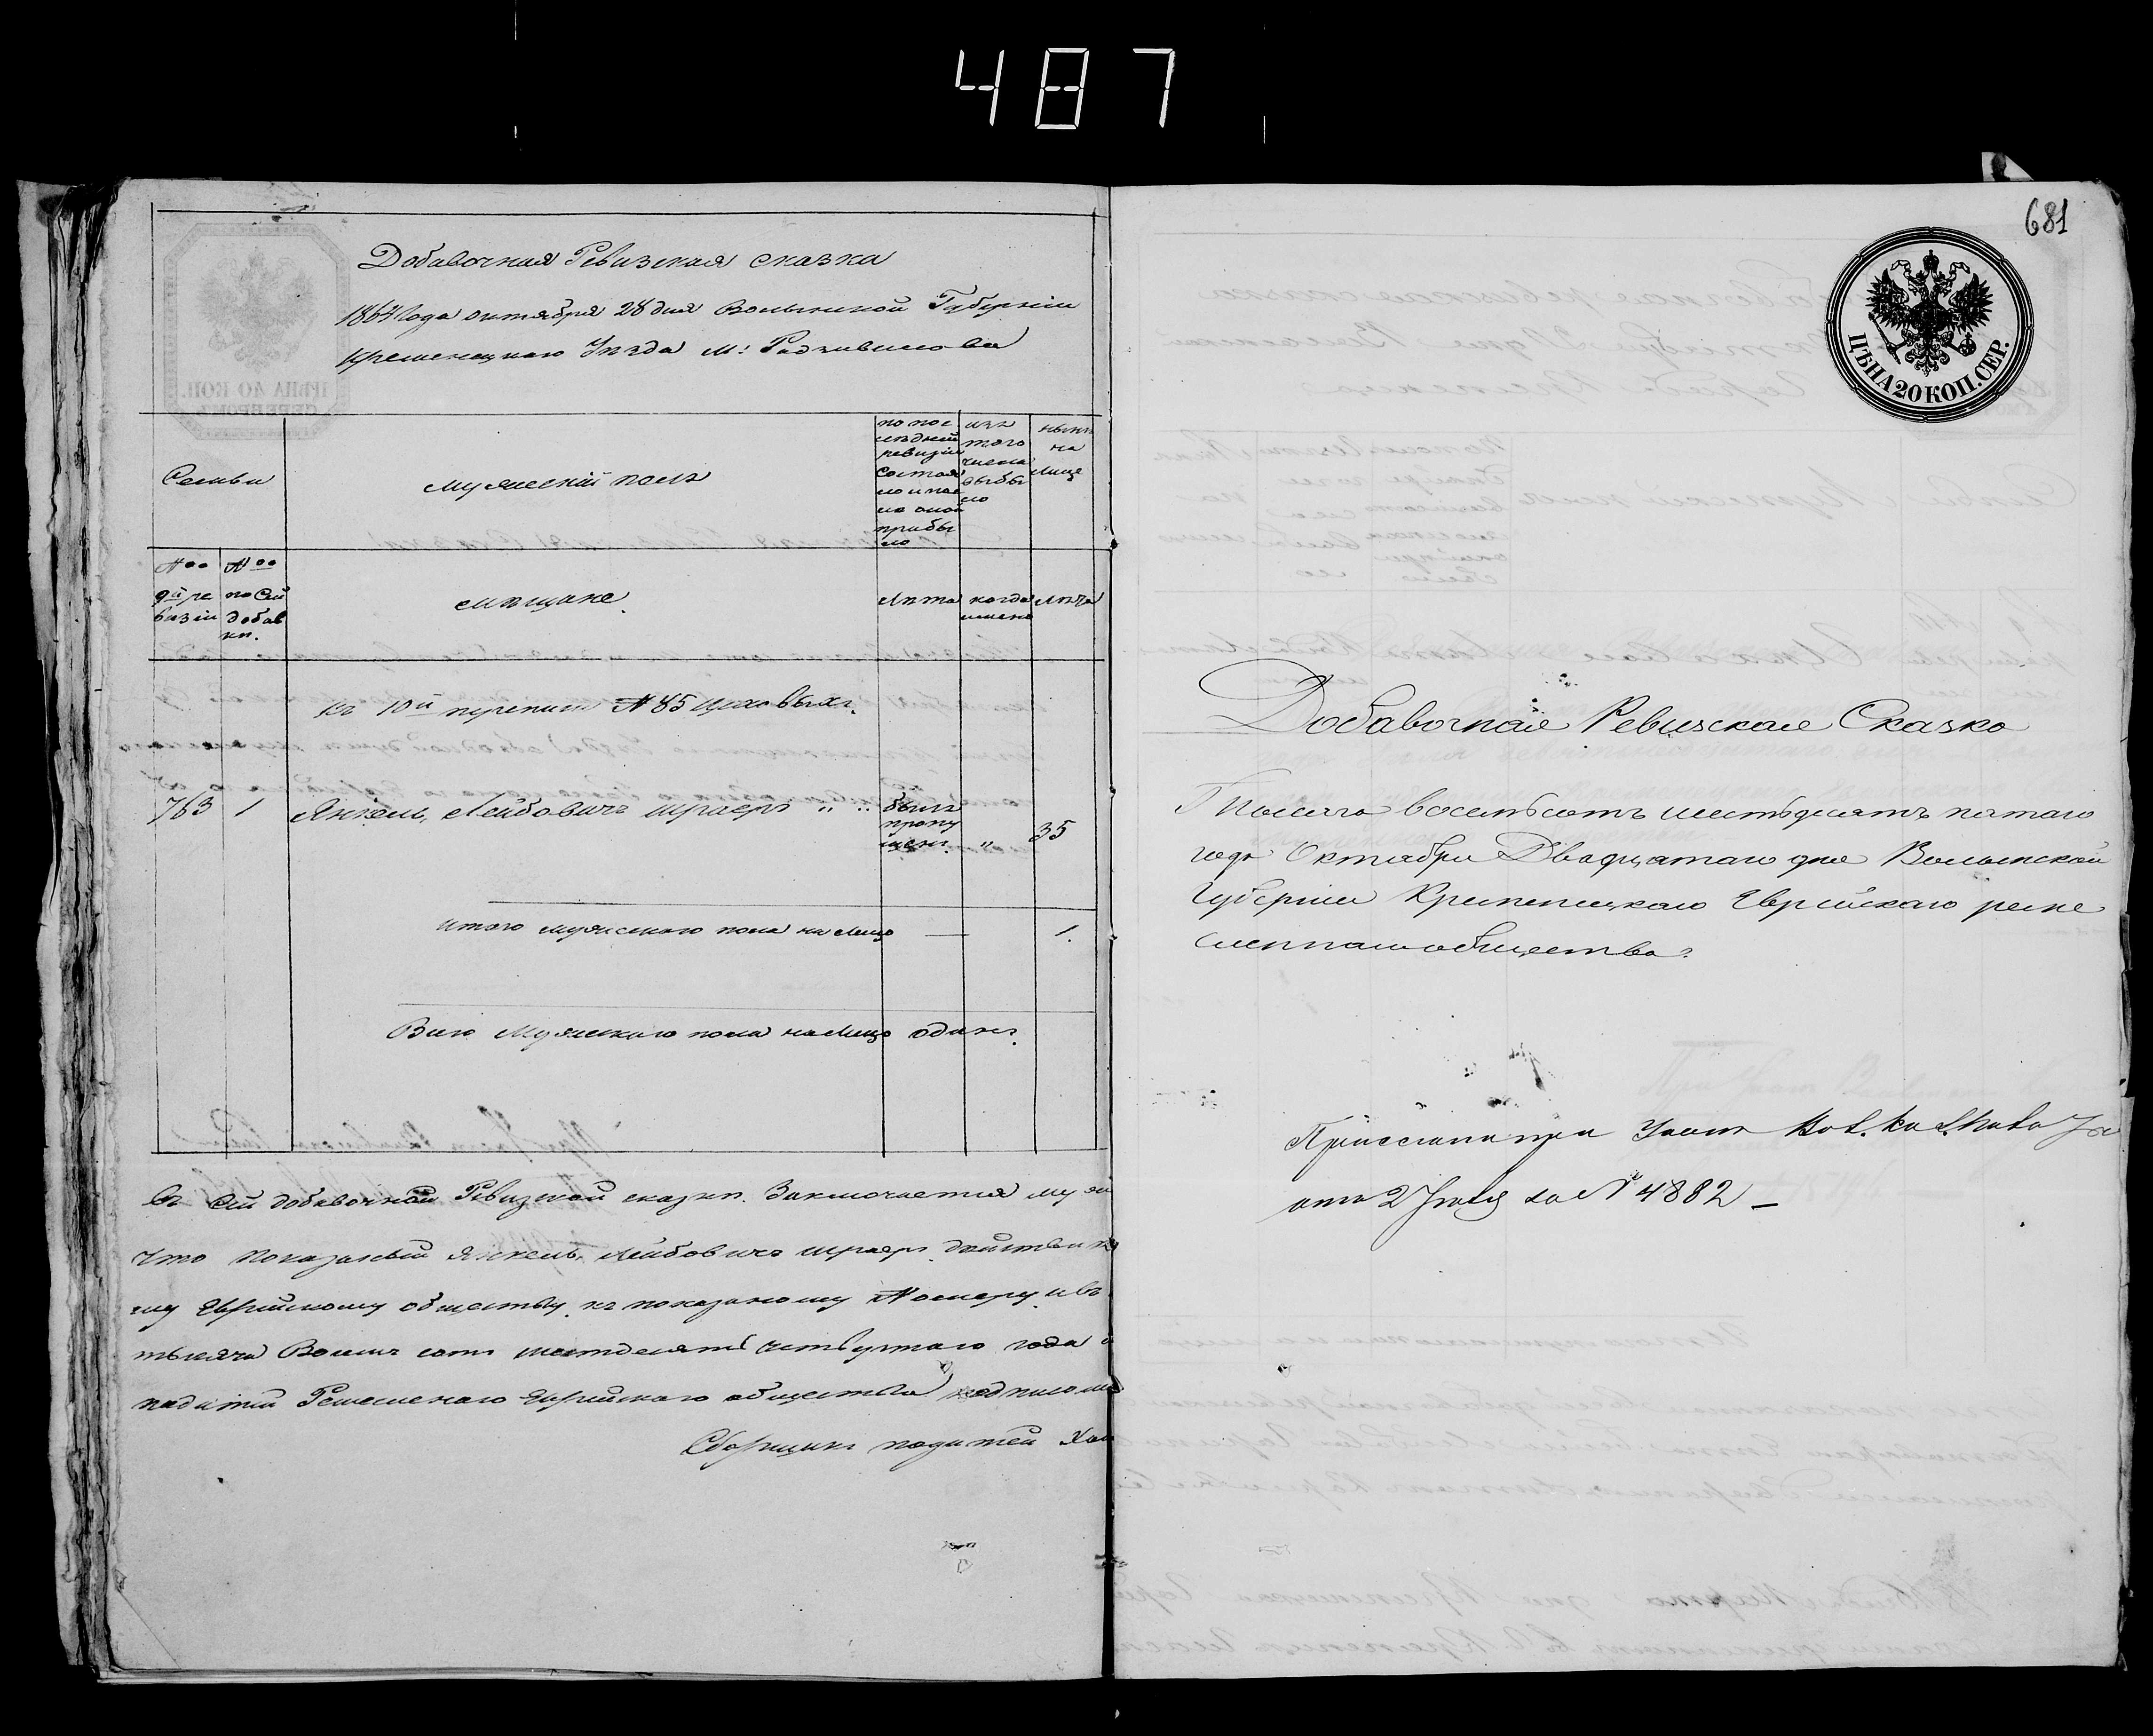 487
Добавочная Ревизская сказка
1864 года октября 28 дня Волынской Губернии
Кременецкаго Уезда М: Радзивилова
Семьи
Мужеский полъ
по пос
ледней
ревизіи
состоя
ло и пос
ле оной
прибы
ло
изъ
того
числа
выбы
ло
нынѣ
на
лице
№оо
9й ре
визіи
№оо
по сей
добав
кѣ.
мѣщане
лѣта
когда
именно
лѣта
къ 10й переписи № 85 цеховыхъ.
763 1 Янкель Лейбовичъ Шраеръ " " былъ
пропу
щенъ. " 35
итого мужескаго пола на лицо — 1.
Всего Мужескаго пола на лицо одинъ.
Въ сей добавочной Ревизской сказкѣ. Заключается
что показаный Янкель Лейбовичъ Шраеръ
Еврейскому обществу къ показаному Номеру и въ
тысяча Восемь сотъ шестдесятъ четвертаго года
податей Ремесленаго Еврейскаго общества
Сборщикъ податей
681
ЦѢНА 20 КОП. СЕР.
Добавочная Ревизская Сказка
Тысяча восемьсотъ шестьдесятъ пятаго
года Октября Двадцатаго дня Волынской
Губерніи Кременецкаго Еврейскаго реме
сленнаго общества.
при
отъ 2 за № 4882 —